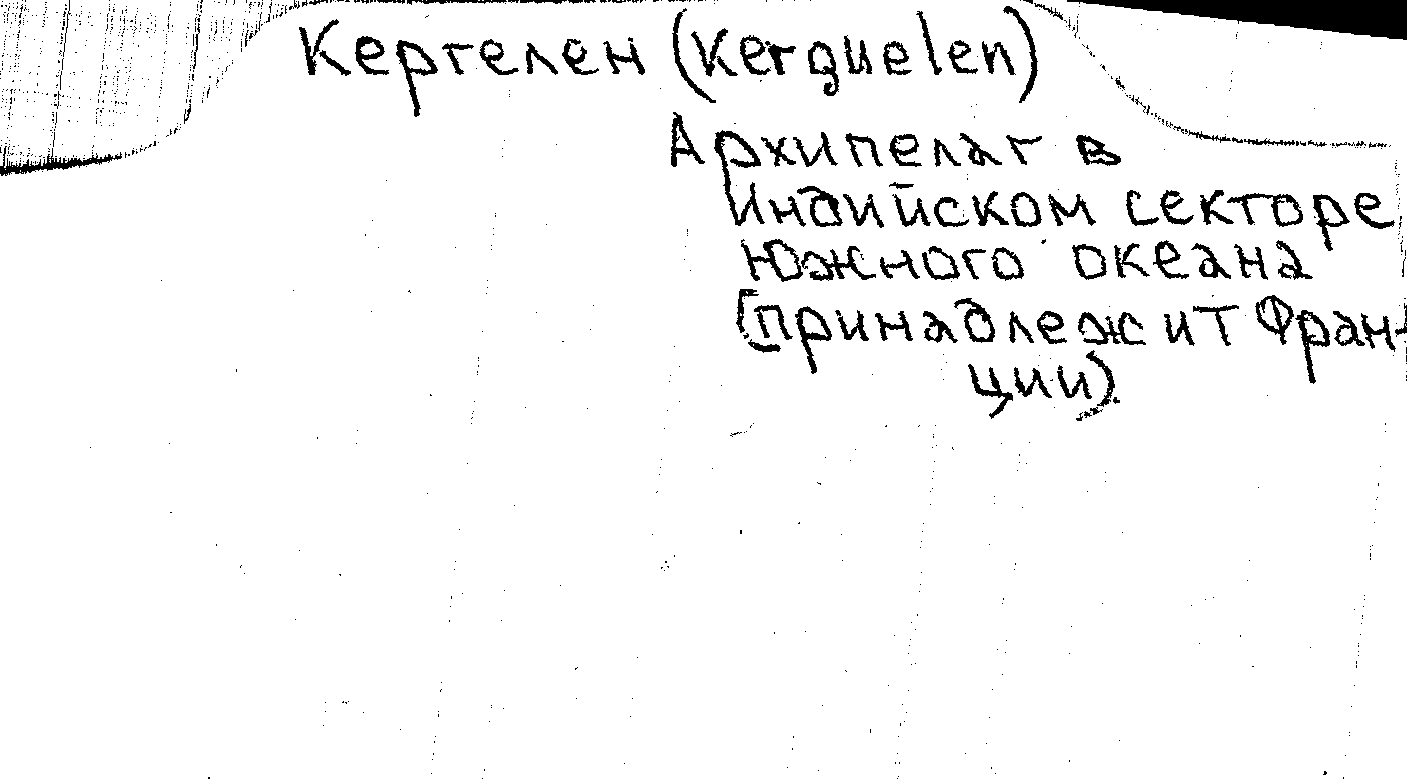 Кергелен (Kerguelen)
Архипелаг в
Индийском секторе
Южного океана
(принадлежит Фран-
ции)